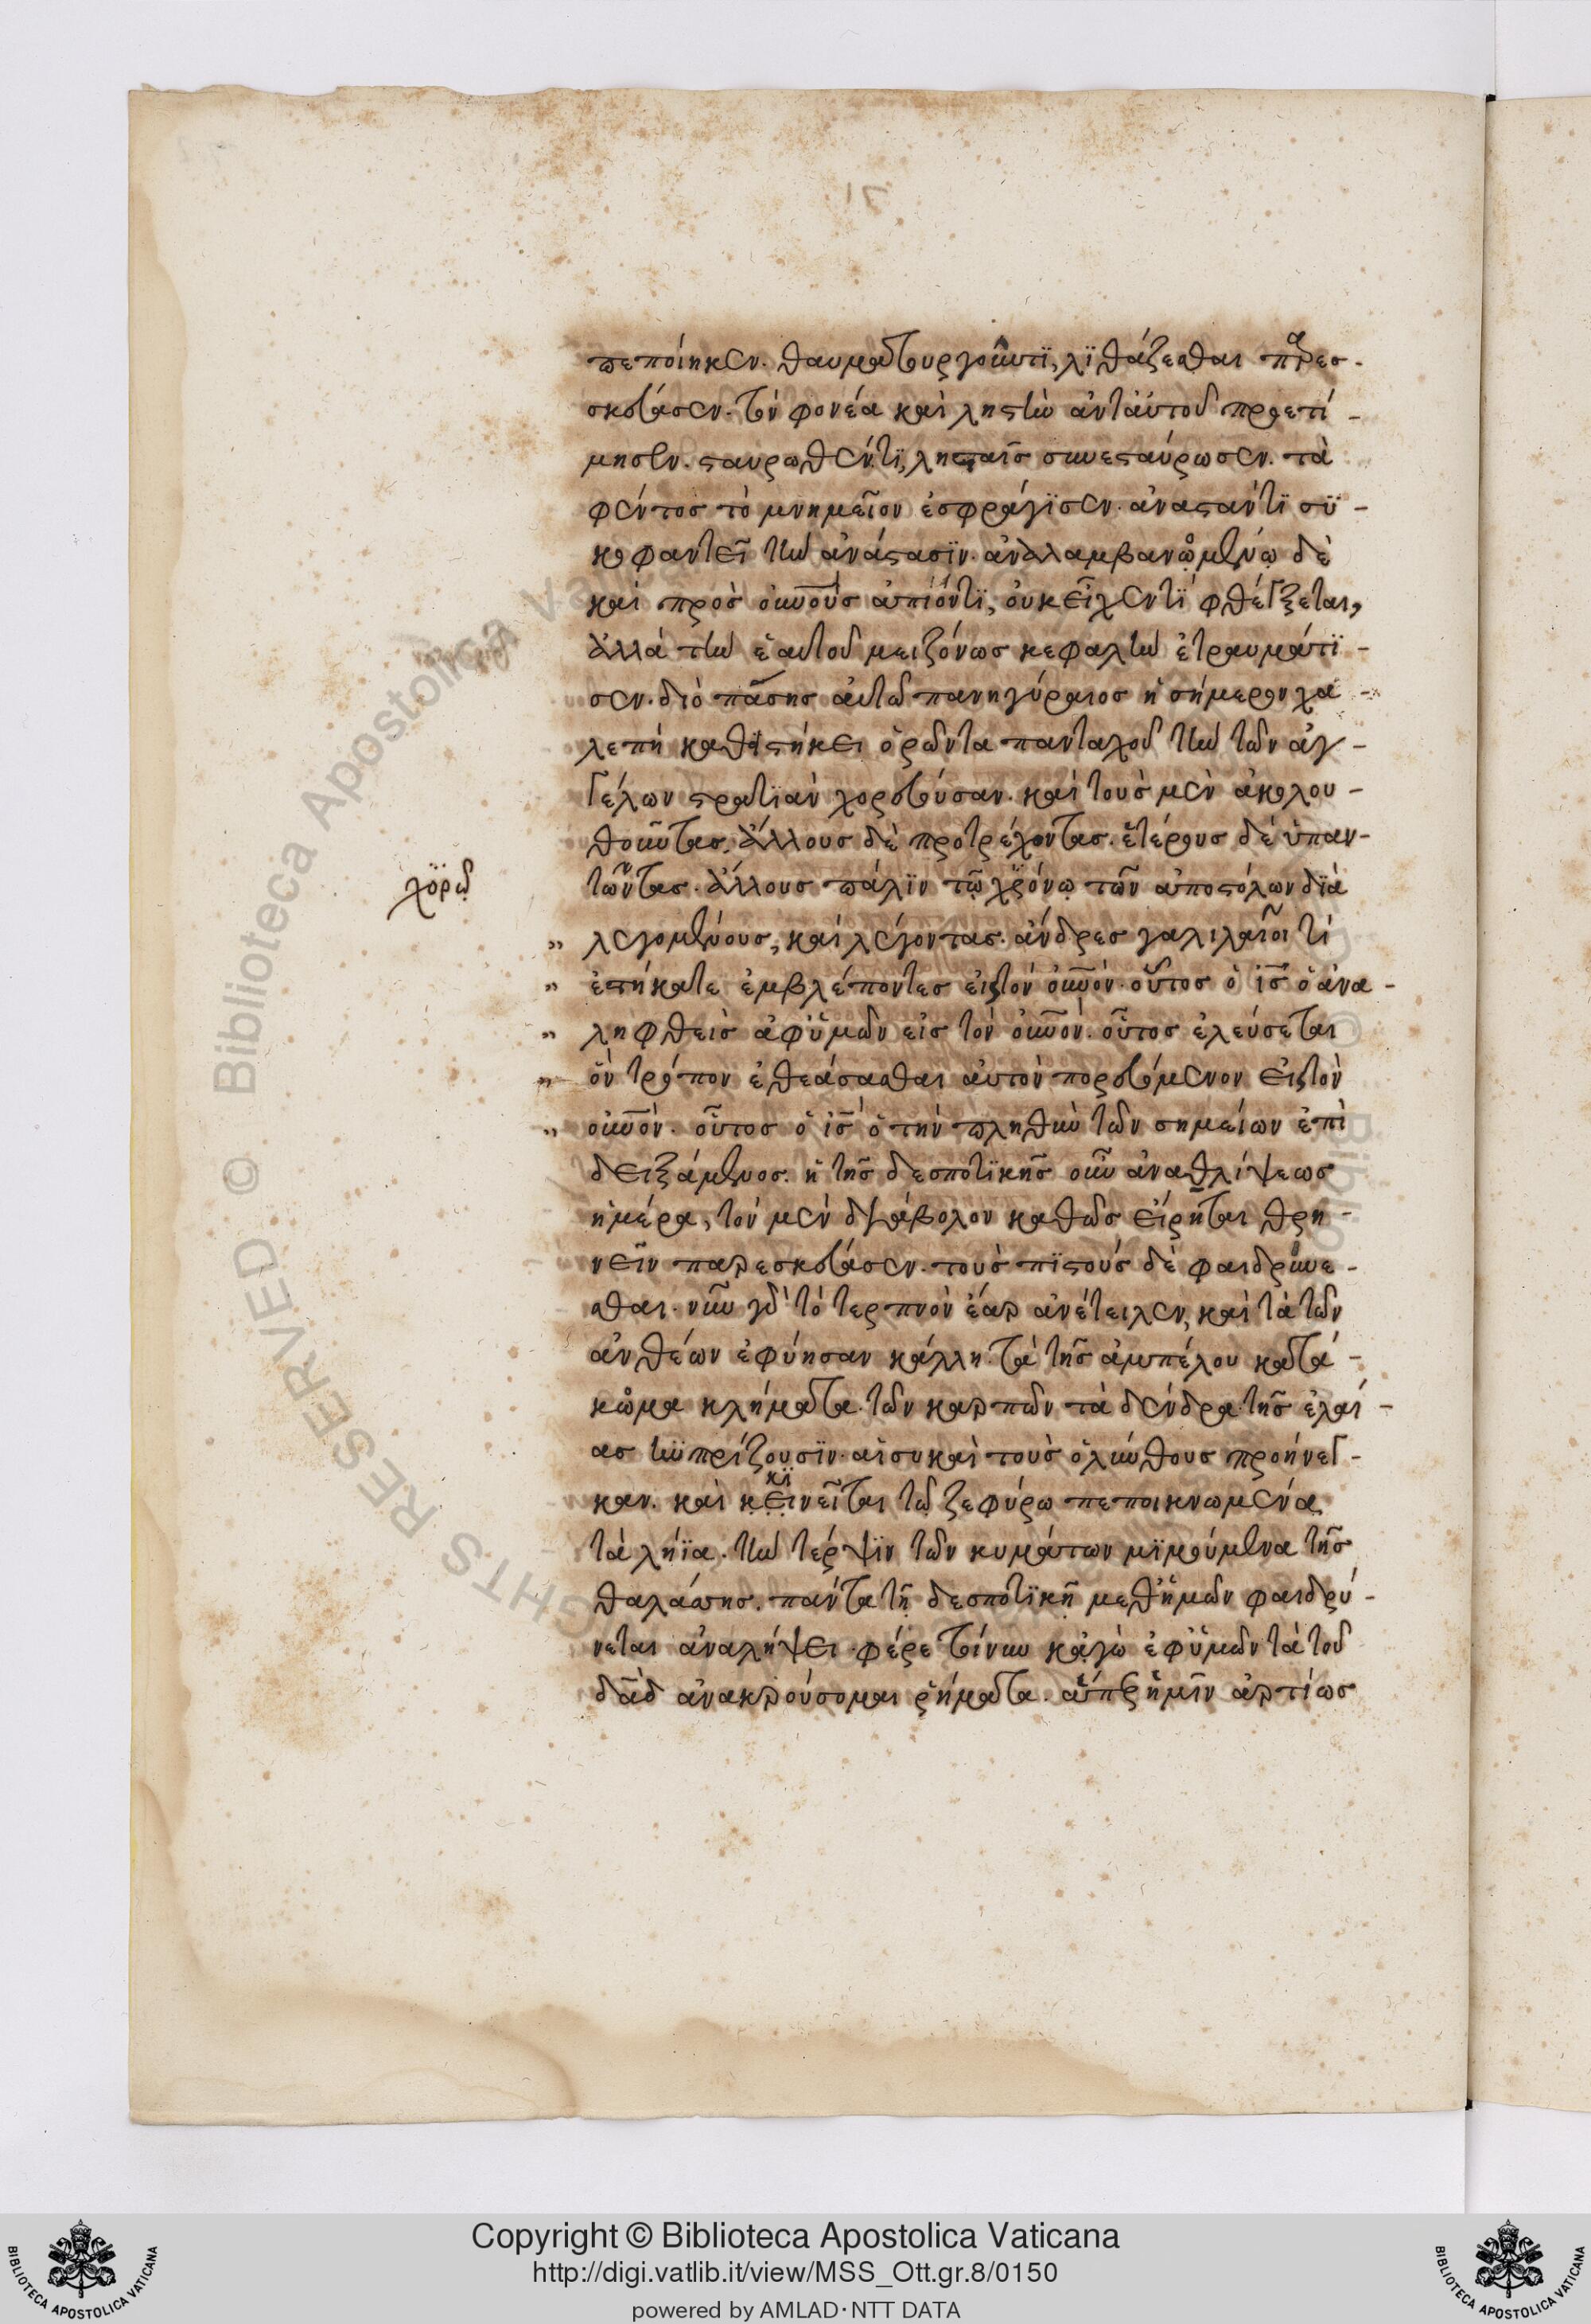 πεποίηκεν. θαυματουργοῦντϊ, λϊθάζεσθαι παρεσ-
σκεύασεν. τὸν φονέα καὶ ληστὴν ἀντ' αὐτοῦ προετί-
μησεν. σταυρωθέντϊ, λησταῖς συνεσταύρωσεν. τὰ
φέντος τὸ μνημεῖον ἐσφράγϊσεν. ἀναστάντϊ σϋ-
κοφαντεῖ τὴν ἀνάστασϊν. ἀναλαμβανομένῳ δὲ
καὶ πρὸς οὐνοὺς ἀπϊόντϊ, οὐκ εἶχεν τϊ φθέγξεται,
ἀλλὰ τὴν ἑαυτοῦ μειζόνως κεφαλὴν ἐτραυμάτϊ-
σεν. διὸ πάσης αὐτῷ πανηγύραιος ἡ σήμερον χα-
λεπὴ καθιστήκει ὁρῶντα πανταχοῦ τὴν τῶν ἀγ-
γέλων στρατϊὰν χορεύουσαν. καὶ τοὺς μὲν ἀκολου-
θοῦντας. ἄλλους δὲ προτρέχοντας. ἑτέρους δὲ ὑπαν-
τῶντας. ἄλλους πάλϊν τῷ χρόνῳ τῶν ἀποστόλων δϊὰ
χὸρῷ
" λεγομένους, καὶ λέγοντας. ἄνδρες γαλιλαῖοι τί
" ἑστήκατε ἐμβλέποντες εἰς τὸν οὐνόν. οὗτος ὁ ἰς ὁ ἀνα-
" ληφθεὶς ἀφ' ὑμῶν εἰς τὸν οὐνόν. οὗτος ἐλεύσεται
" ὃν τρόπον ἐθεάσασθαι αὐτὸν πορευόμενον εἰς τὸν
" οὐνόν. οὗτος ὁ ἰς ὁ τὴν πληθὺν τῶν σημείων ἐπὶ
δειξάμενος. ἡ τῆς δεσποτϊκῆς οὖν ἀναθλίψεως
ἡμέρα, τὸν μὲν διάβολον καθὼς εἴρηται θρη-
νεῖν παρεσκεύασεν. τοὺς πϊστοὺς δὲ φαιδρύνε-
σθαι. νῦν γὰρ τὸ τερπνὸν ἔαρ ἀνέτειλεν, καὶ τὰ τῶν
ἀνθέων ἐφύησαν κάλλη. τὰ τῆς ἀμπέλου κατά-
κωμα κλήματα. τῶν καρπῶν τὰ δένδρα τῆς ἐλαί-
ας ἠϋπρίζουσϊν. αἱ συκαὶ τοὺς ὀλύνθους προήνεγ-
καν. καὶ κεινεῖται τῷ ζεφύρω πεποικνωμένα
κϊ
τὰ λήϊα. τὴν τέρψϊν τῶν κυμάτων μϊμούμενα τῆς
θαλάσσης. πάντα τῇ δεσποτϊκῇ μεθ' ἡμῶν φαιδρύ-
νεται ἀναλήψει. φέρε τοίνυν κἀγὼ ἐφ' ὑμῶν τὰ τοῦ
δᾶδ ἀνακρούσομαι ῥήματα. ἅπερ ἡμῖν ἀρτίως
Copyright © Biblioteca Apostolica Vaticana
http://digi.vatlib.it/view/MSS_Ott.gr.8/0150
powered by AMLAD·NTT DATA